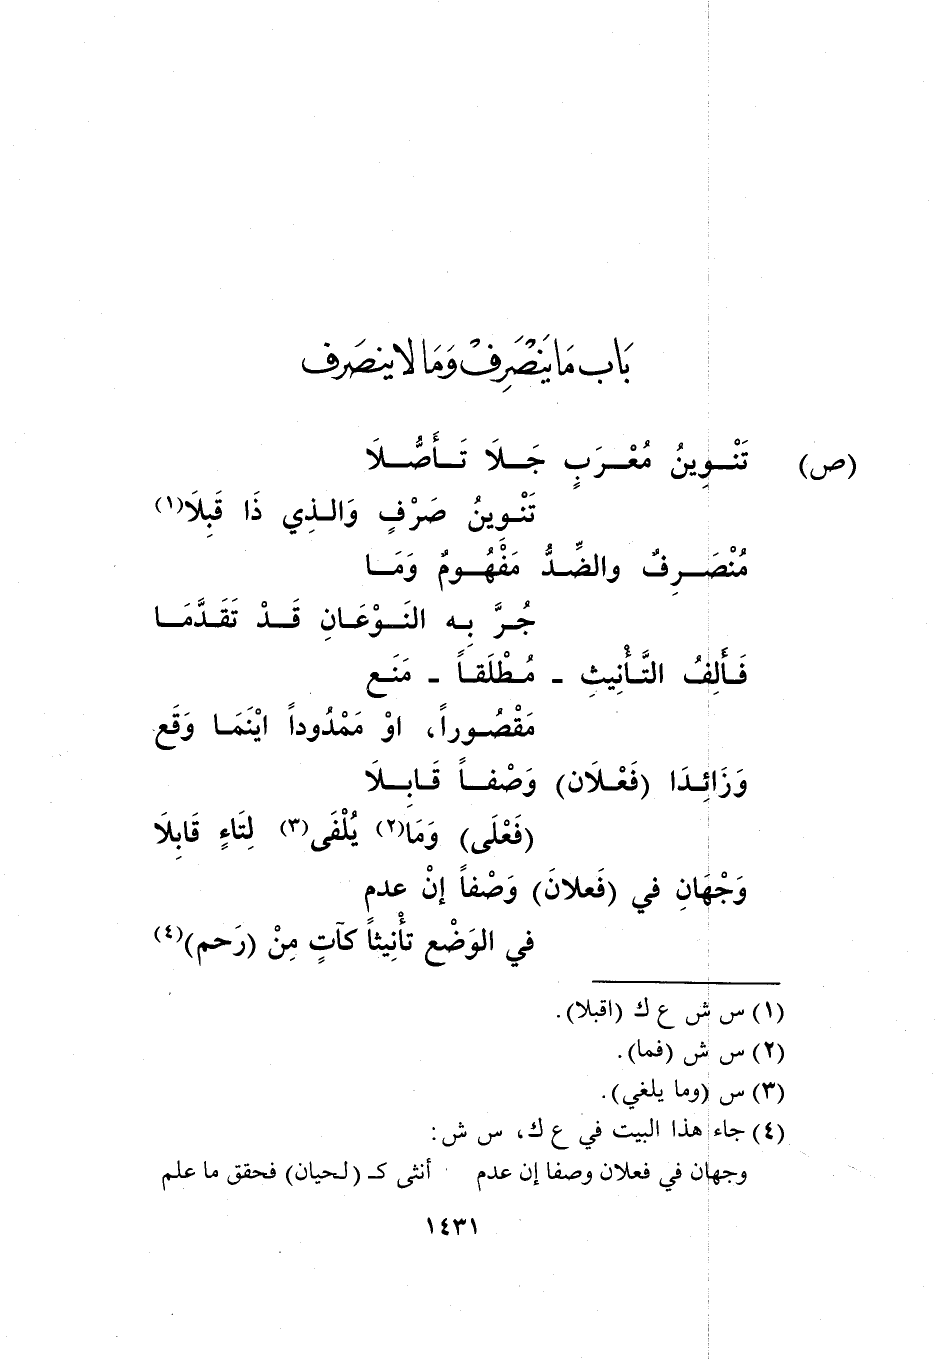 بَاب مَا يَنْصَرِفْ وَمَا لا ينصَرف
(ص) تَنْوِينُ مُعْرَبٍ جَلَا تَأَصُّلَا
تَنْوِينُ صَرْفٍ وَالذِي ذَا قَبِلَا(١)
مُنْصَرِفٌ والضِّدُّ مَفْهُومٌ وَمَا
جُرَّ بِه النَوْعَانِ قَدْ تَقَدَّمَا
فَأَلِفُ التَّأْنِيثِ - مُطْلَقاً - مَنَع
مَقْصُوراً، اوْ مَمْدُوداً ايْنَمَا وَقَع
وَزَائِدَا (فَعْلَان) وَصْفاً قَابِلَا
(فَعْلَى) وَمَا(٢) يُلْفَى(٣) لِتَاءٍ قَابِلَا
وَجْهَانِ في (فَعلانَ) وَصْفاً إنْ عدم
في الوَضْع تأْنِيثاً كآتٍ مِنْ (رَحم)(٤)
(١) س ش ع ك (اقبلا).
(٢) س ش (فما).
(٣) س (وما يلغي).
(٤) جاء هذا البيت في ع ك، س ش:
وجهان في فعلان وصفا إن عدم أنثى كـ (لحيان) فحقق ما علم
١٤٣١